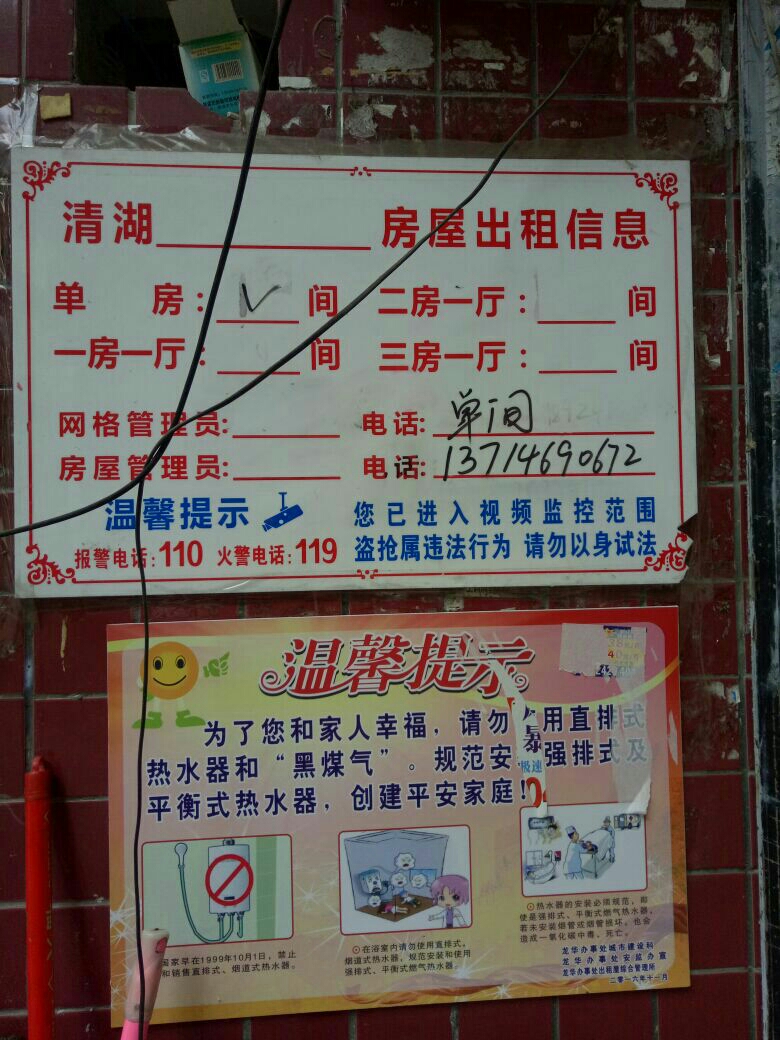 清湖 房屋出租信息
单 房: ✓ 间 二房一厅: 间
一房一厅: 间 三房一厅: 间
网格管理员: 电话: 单间
房屋管理员: 电话: 13714690672
温馨提示 您已进入视频监控范围
报警电话:110 火警电话:119 盗抢属违法行为 请勿以身试法
温馨提示
为了您和家人幸福,请勿 用直排式
热水器和“黑煤气”。规范安 强排式及
平衡式热水器,创建平安家庭!
暴
极速
国家早在1999年10月1日,禁止
和销售直排式、烟道式热水器。
⊙在浴室内请勿使用直排式、
烟道式热水器,规范安装和使用
强排式、平衡式燃气热水器。
⊙热水器的安装必须规范,即
使是强排式、平衡式燃气热水器,
若未安装烟管或烟管损坏,也会
造成一氧化碳中毒、死亡。
龙华办事处城市建设科
龙华办事处安监办宣
龙华办事处出租屋综合管理所
二零一六年十一月